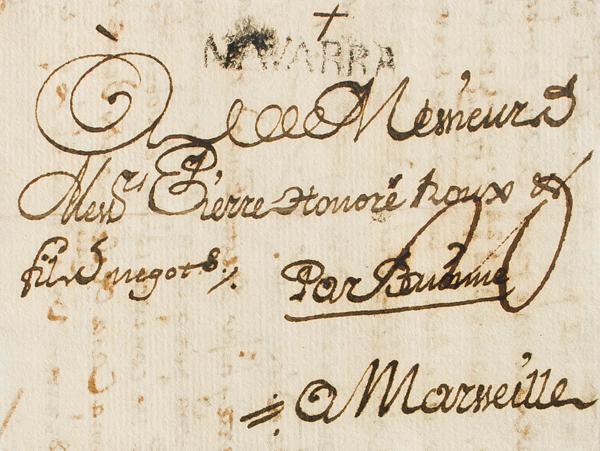 NAVARRA
À Messieurs
Mess.rs Pierre Honoré Roux &
fils negots
Par Baionne
à Marseille